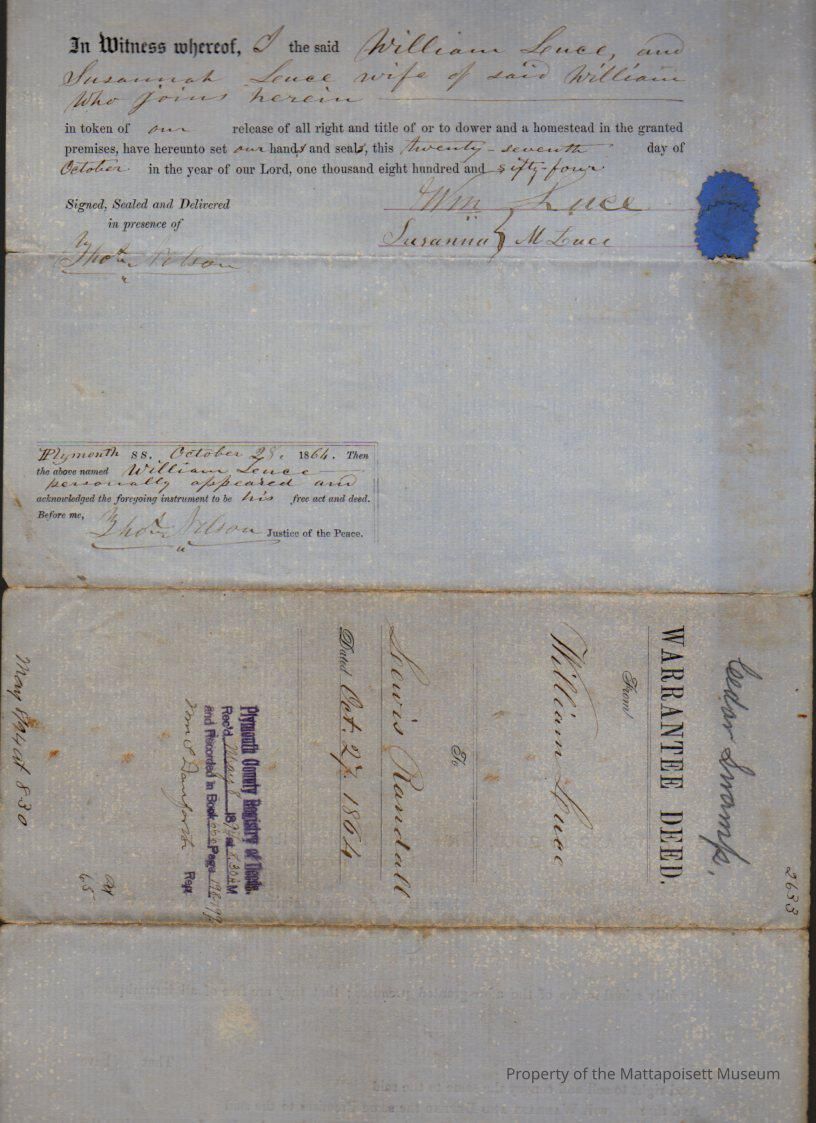 In Witness whereof, I the said William Luce, and
Susannah Luce wife of said William
who joins herein
in token of our release of all right and title of or to dower and a homestead in the granted
premises, have hereunto set our hands and seals, this twenty-seventh day of
October in the year of our Lord, one thousand eight hundred and sixty-four
Signed, Sealed and Delivered
in presence of
Wm Luce
Susanna M Luce
Thos Nelson
Plymouth SS. October 28, 1864. Then
the above named William Luce
personally appeared and
acknowledged the foregoing instrument to be his free act and deed.
Before me, Thos Nelson Justice of the Peace.
Cedar Swamp,
2633
WARRANTEE DEED.
From
William Luce
To
Lewis Randall
Dated Oct. 27. 1864
Plymouth County Registry of Deeds.
Rec'd May 8 1894 at 8.30 A M
and Recorded in Book Page
Wm S Danforth Reg.
65
May 8/94 at 8 30
Property of the Mattapoisett Museum